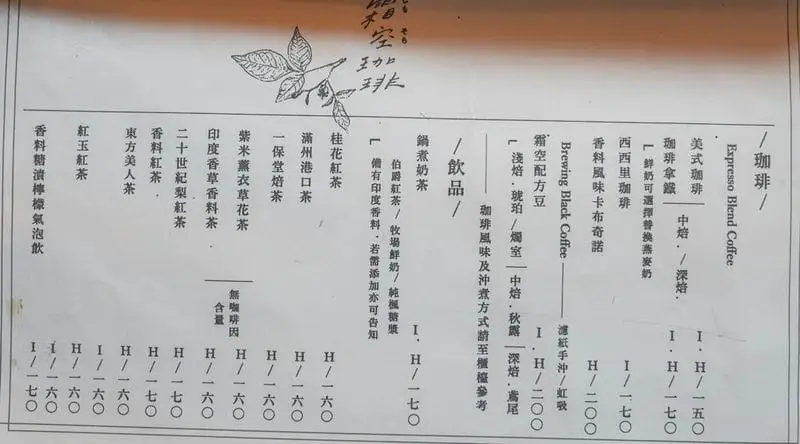 霜空珈琲
しも そら
/珈琲/
Expresso Blend Coffee
美式珈琲 中焙./深焙. I.H/一五〇
珈琲拿鐵 I.H/一七〇
鮮奶可選擇替換燕麥奶
西西里珈琲 I/一七〇
香料風味卡布奇諾 H/二〇〇
Brewing Black Coffee 濾紙手沖/虹吸
霜空配方豆 I.H/二〇〇
淺焙.琥珀/燭室|中焙.秋露|深焙.鳶尾
珈琲風味及沖煮方式請至櫃檯參考
/飲品/
鍋煮奶茶 I.H/一七〇
伯爵紅茶/牧場鮮奶/純楓糖漿
備有印度香料.若需添加亦可告知
桂花紅茶 H/一六〇
滿州港口茶 H/一六〇
一保堂焙茶 H/一六〇
紫米薰衣草花茶 H/一六〇
印度香草香料茶 H/一六〇
無咖啡因
含量
二十世紀梨紅茶 H/一七〇
香料紅茶 H/一七〇
東方美人茶 H/一六〇
I/一六〇
紅玉紅茶 H/一六〇
I/一六〇
香料糖漬檸檬氣泡飲 I/一七〇